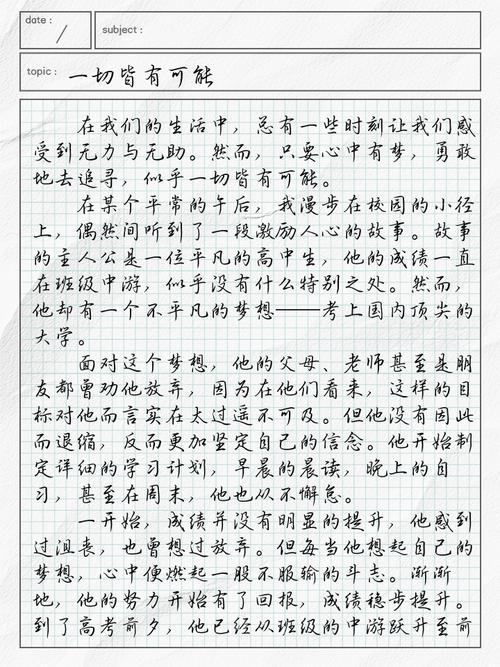 date :
subject :
topic : 一切皆有可能
在我们的生活中，总有一些时刻让我们感
受到无力与无助。然而，只要心中有梦，勇敢
地去追寻，似乎一切皆有可能。
在某个平常的午后，我漫步在校园的小径
上，偶然间听到了一段激励人心的故事。故事
的主人公是一位平凡的高中生，他的成绩一直
在班级中游，似乎没有什么特别之处。然而，
他却有一个不平凡的梦想——考上国内顶尖的
大学。
面对这个梦想，他的父母、老师甚至是朋
友都曾劝他放弃，因为在他们看来，这样的目
标对他而言实在太过遥不可及。但他没有因此
而退缩，反而更加坚定自己的信念。他开始制
定详细的学习计划，早晨的晨读，晚上的自
习，甚至在周末，他也从不懈怠。
一开始，成绩并没有明显的提升，他感到
过沮丧，也曾想过放弃。但每当他想起自己的
梦想，心中便燃起一股不服输的斗志。渐渐
地，他的努力开始有了回报，成绩稳步提升。
到了高考前夕，他已经从班级的中游跃升至前